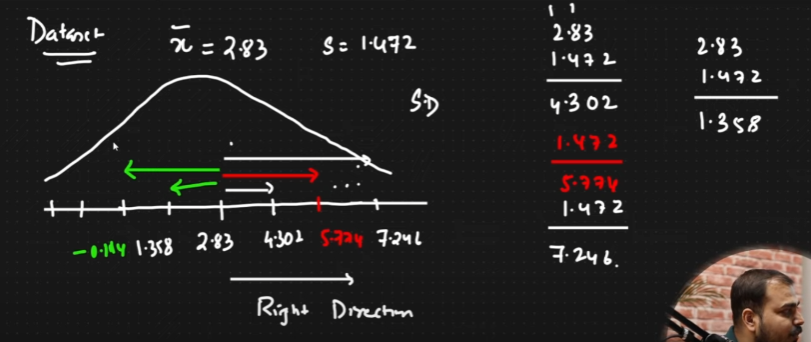 Dataset
x̄ = 2.83 S = 1.472
S.D
-0.114 1.358 2.83 4.302 5.774 7.246
Right Direction
1 1
2.83
1.472
4.302
1.472
5.774
1.472
7.246.
2.83
1.472
1.358